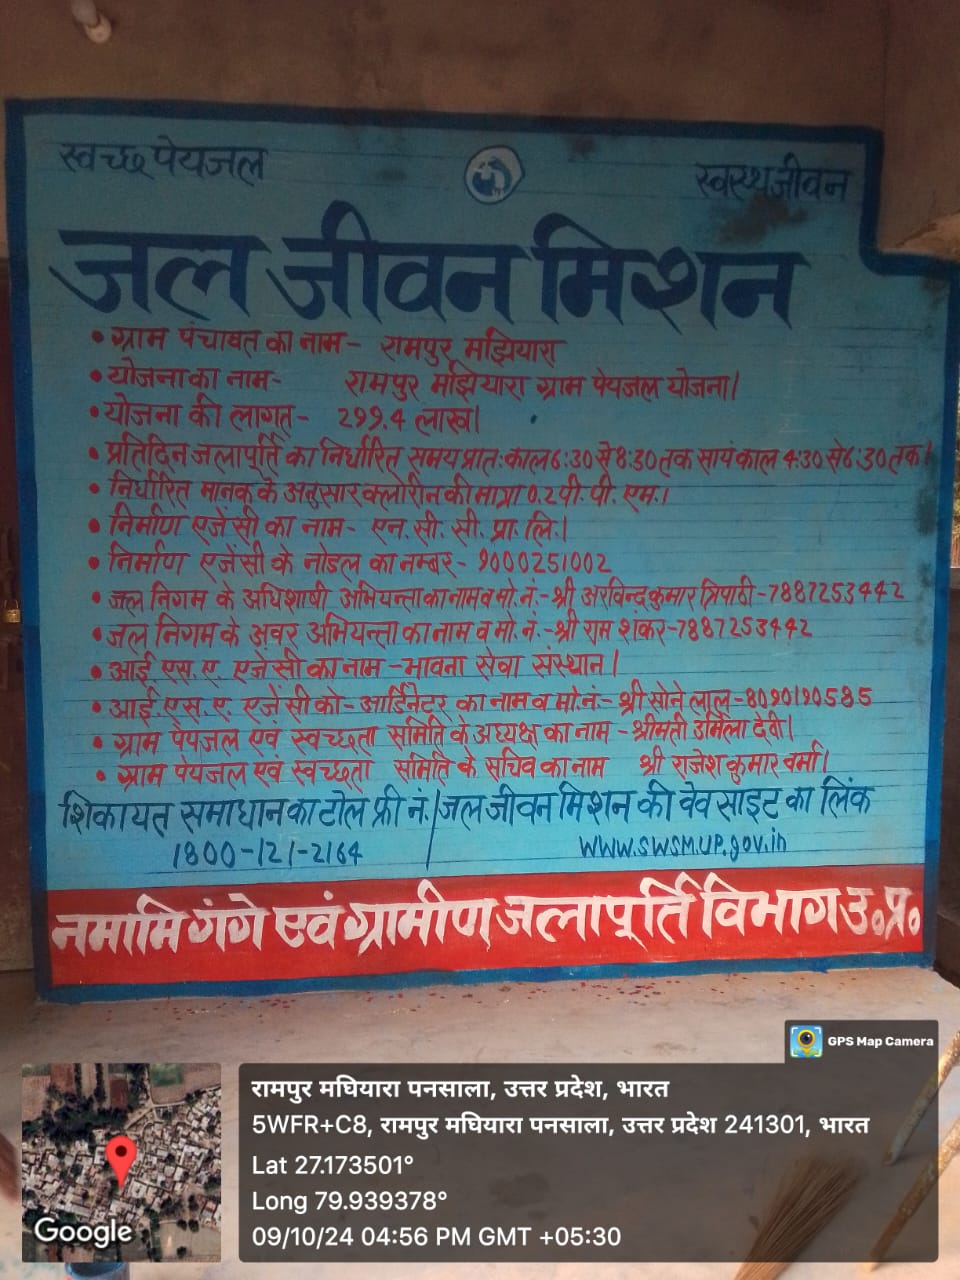 स्वच्छ पेयजल
स्वस्थ जीवन
जल जीवन मिशन
• ग्राम पंचायत का नाम - रामपुर मझियारा
• योजना का नाम - रामपुर मझियारा ग्राम पेयजल योजना।
• योजना की लागत - 299.4 लाख।
• प्रतिदिन जलापूर्ति का निर्धारित समय प्रातः काल 6:30 से 8:30 तक सायं काल 4:30 से 6:30 तक।
• निर्धारित मानक के अनुसार क्लोरीन की मात्रा 0.2 पी. पी. एम.।
• निर्माण एजेंसी का नाम - एन. सी. सी. प्रा. लि.।
• निर्माण एजेंसी के नोडल का नम्बर - 9000251002
• जल निगम के अधिशाषी अभियन्ता का नाम व मो. नं. - श्री अरविन्द कुमार त्रिपाठी - 7887253442
• जल निगम के अवर अभियन्ता का नाम व मो. नं. - श्री राम शंकर - 7887253442
• आई. एस. ए. एजेंसी का नाम - भावना सेवा संस्थान।
• आई. एस. ए. एजेंसी को - आर्डिनेटर का नाम व मो. नं. - श्री सोने लाल - 8090190585
• ग्राम पेयजल एवं स्वच्छता समिति के अध्यक्ष का नाम - श्रीमती उर्मिला देवी।
• ग्राम पेयजल एवं स्वच्छता समिति के सचिव का नाम श्री राजेश कुमार वर्मा।
शिकायत समाधान का टोल फ्री नं. / जल जीवन मिशन की वेव साइट का लिंक
1800-121-2164 / www.swsm.up.gov.in
नमामि गंगे एवं ग्रामीण जलापूर्ति विभाग उ० प्र०
GPS Map Camera
रामपुर मघियारा पनसाला, उत्तर प्रदेश, भारत
5WFR+C8, रामपुर मघियारा पनसाला, उत्तर प्रदेश 241301, भारत
Lat 27.173501°
Long 79.939378°
09/10/24 04:56 PM GMT +05:30
Google